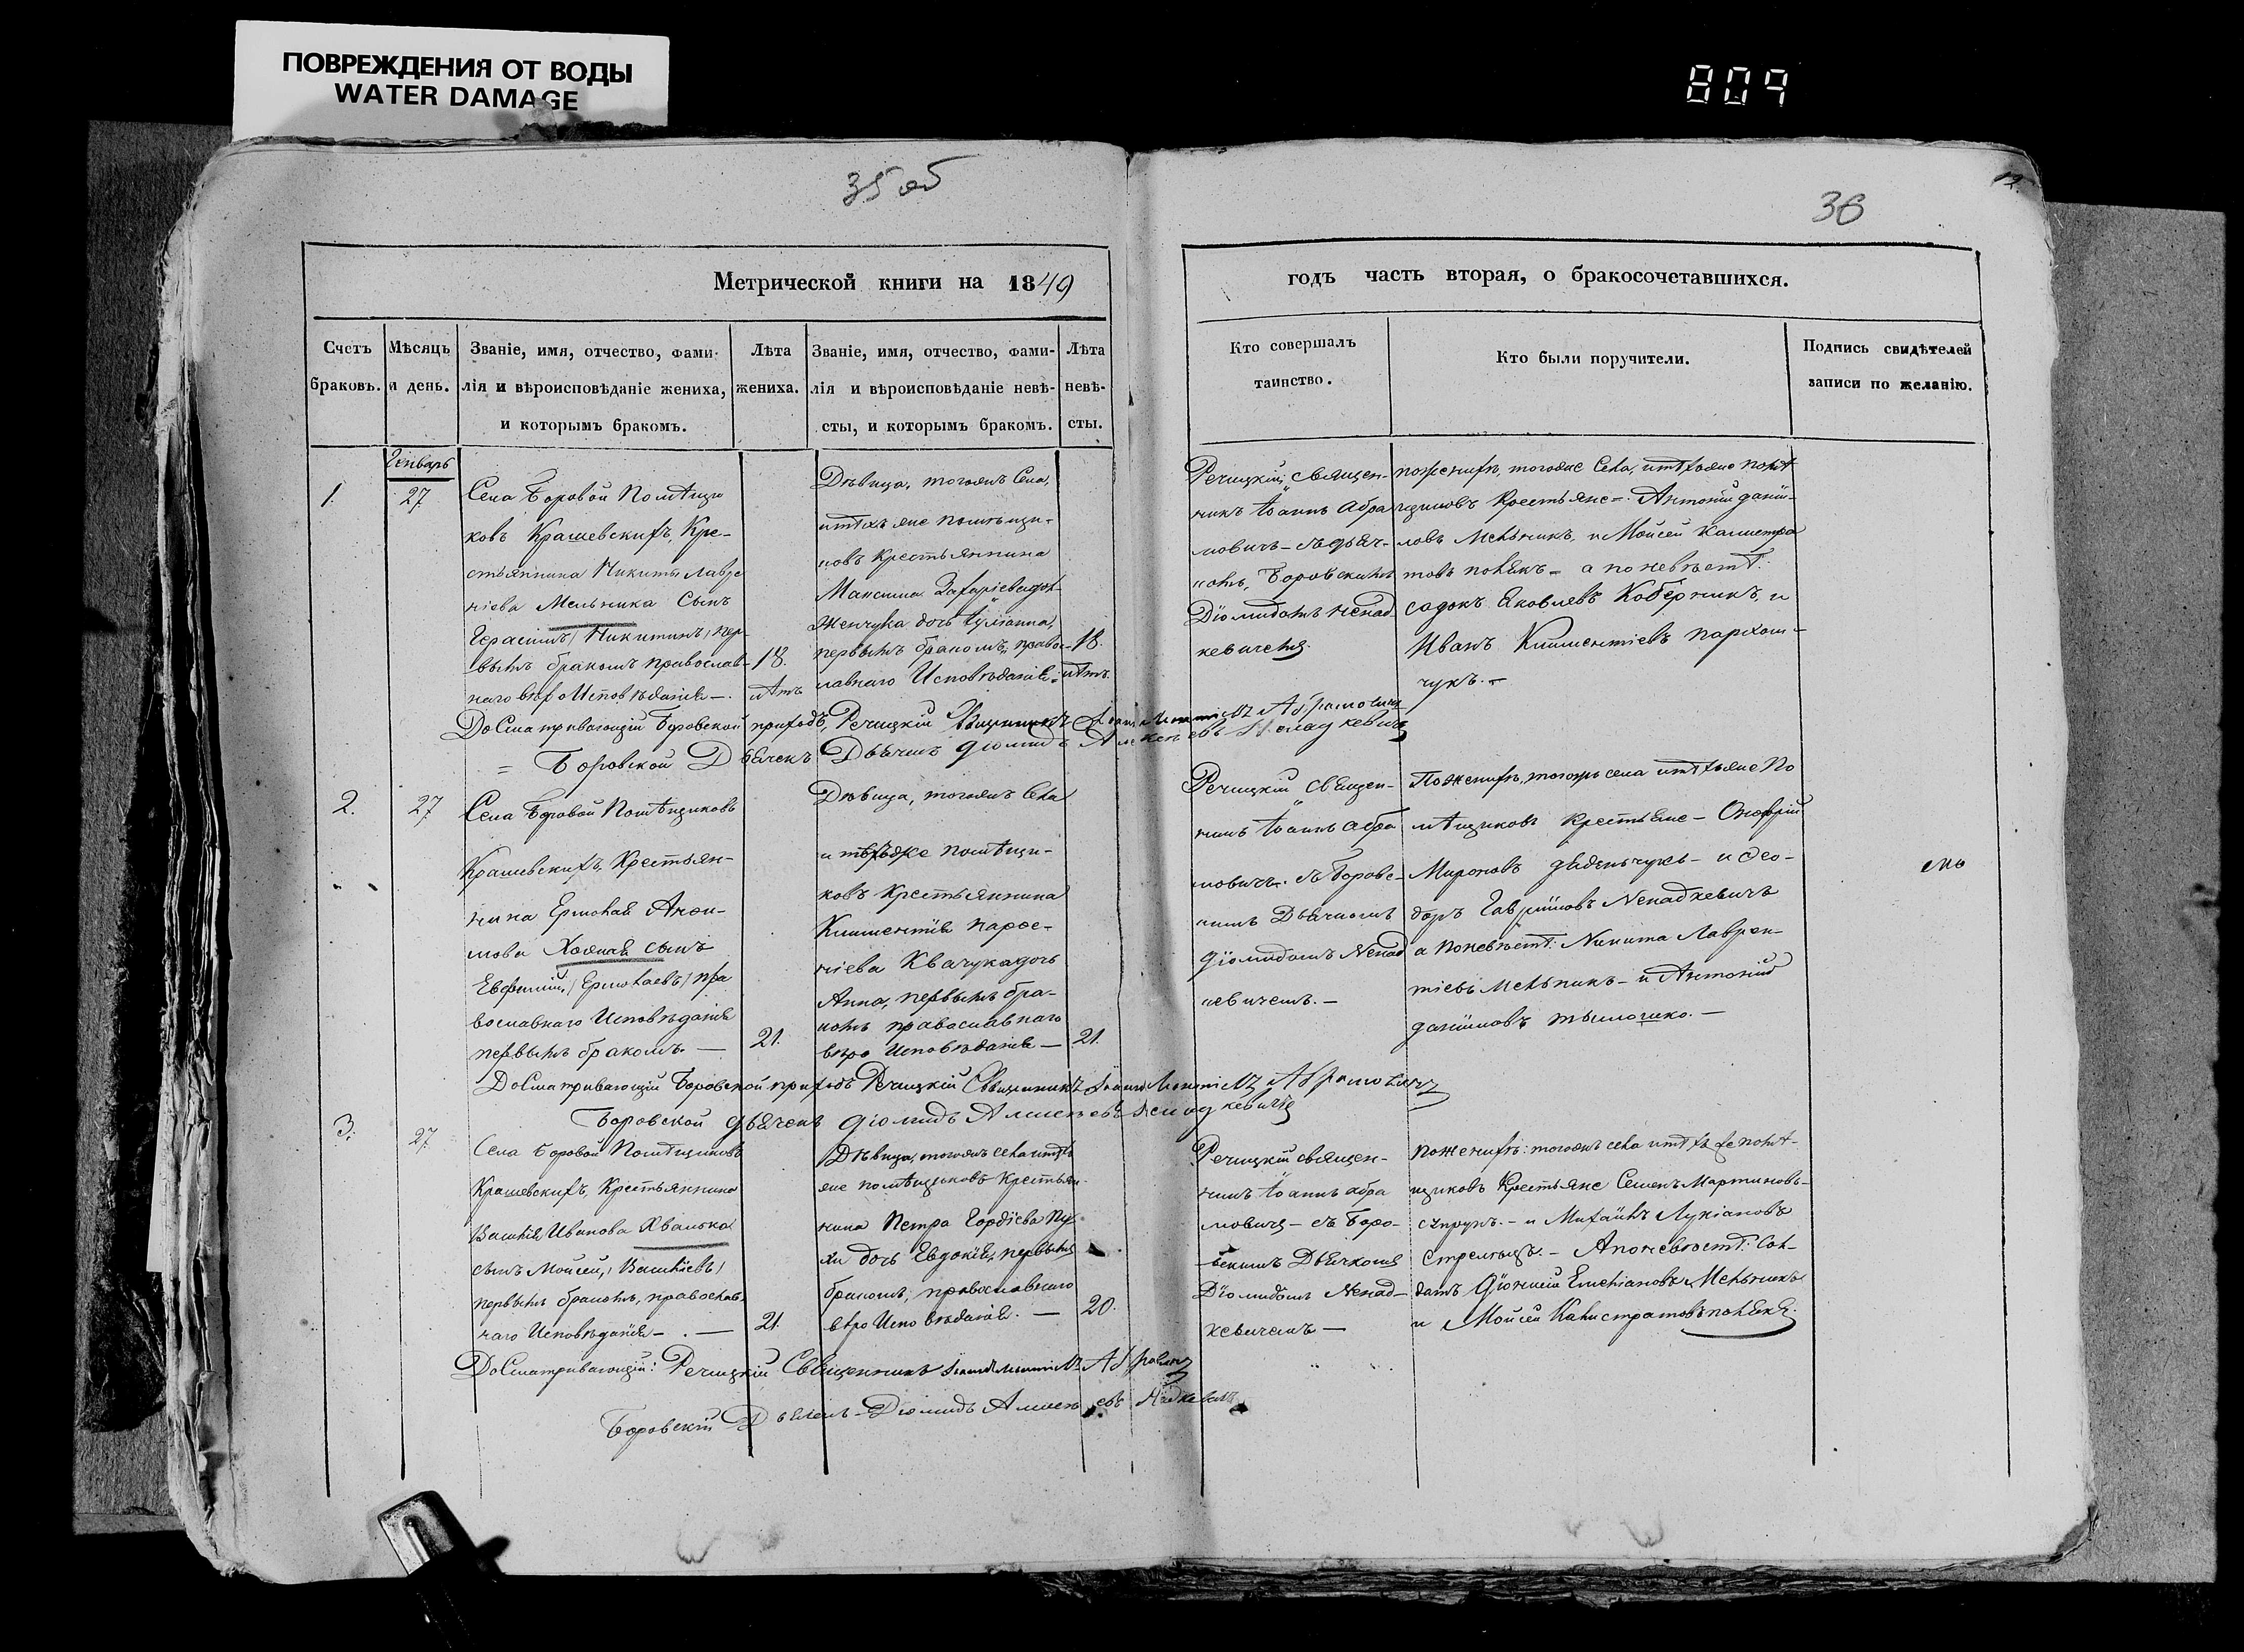 ПОВРЕЖДЕНИЯ ОТ ВОДЫ
WATER DAMAGE
809
35 об
36
12.
Метрической книги на 1849
годъ часть вторая, о бракосочетавшихся.
Счетъ браковъ.
Мѣсяцъ и день.
Званіе, имя, отчество, фами-
лія и вѣроисповѣданіе жениха,
и которымъ бракомъ.
Лѣта
жениха.
Званіе, имя, отчество, фами-
лія и вѣроисповѣданіе невѣ-
сты, и которымъ бракомъ.
Лѣта
невѣ-
сты.
Кто совершалъ
таинство.
Кто были поручители.
Подпись свидѣтелей
записи по желанію.
Генварь
1.
27
Села Боровой Помѣщи
ковъ Крашевскихъ, Кре-
стьянина Никиты Лавре
нтіева Мельника Сынъ
Герасимъ / Никитинъ / пер-
вымъ бракомъ православ-
наго вѣроИсповѣданія —.
18.
лѣтъ
Дѣвица, тогожъ Села,
и тѣхъ же помѣщи-
ковъ крестьянина
Максима Захаріева
дочь Іуліанна,
первымъ бракомъ, право-
славнаго Исповѣданія
18.
лѣтъ
Речицкій Священ-
никъ Іоаннъ Абра
мовичъ - съ дьяч-
комъ, Боровскимъ
Діомидомъ Ненад
кевичемъ.
по женихѣ, тогоже Села, и тѣхъже помѣ
щиковъ Крестьяне =. Антоній Даніи-
ловъ Мельникъ, и Мойсей Калистра
товъ Полѣкъ - а по невѣстѣ:
Садокъ Яковлевъ Коберникъ, и
Иванъ Климентіевъ Пархом-
чукъ. -
Досматривающій Боровской приходъ, Речицкій Священникъ Іоаннъ Абрамовичъ
= Боровской Дьячекъ Діомидъ Алексѣевъ Ненадкевичъ
2.
27
Села Боровой Помѣщиковъ
Крашевскихъ, Крестьян-
нина Ермолая Аноси-
мова Хомяка сынъ
Евфимій, / Ермолаевъ / пра
вославнаго Исповѣданія
первымъ бракомъ. —
21.
Дѣвица, тогожъ Села
и тѣхъже помѣщи-
ковъ Крестьянина
Климентія Парфе-
ніева Квачука дочь
Анна, первымъ бра-
комъ православнаго
вѣро Исповѣданія —
21.
Речицкій Священ-
никъ Іоаннъ Абра
мовичъ. съ Боровс-
кимъ Дьячкомъ
Діомидомъ Ненад
кевичемъ. —
По женихѣ, тогожъ села и тѣхъже По
мѣщиковъ Крестьяне - Онофрій
Мироновъ - и Фео-
доръ Гавриловъ Ненадкевичъ
а по невѣстѣ: Никита Лаврен-
тіевъ Мельникъ - и Антоній
Даніиловъ Тимошко. —
Досматривающій Боровской приходъ Речицкій Священникъ Іоаннъ Абрамовичъ
Боровской дьячекъ Діомидъ Алексѣевъ Ненадкевичъ
3.
27.
Села Боровой Помѣщиковъ
Крашевскихъ, Крестьянина
Василія Иванова Хвалька
сынъ Мойсей, / Василіевъ /
первымъ бракомъ, православ
наго Исповѣданія - . —
21.
Дѣвица, тогожъ села и тѣхъ
же помѣщиковъ Крестьян-
нина Петра Гордіева
дочь Евдокія, первымъ
бракомъ, православнаго
вѣро Исповѣданія. —
20.
Речицкій Священ-
никъ Іоаннъ Абра
мовичъ - съ Боро-
вскимъ Дьячкомъ
Діомидомъ Ненад-
кевичемъ —
по женихѣ: тогожъ села и тѣхъже помѣ-
щиковъ Крестьяне Семенъ Мартиновъ-
Супрунъ. - и Михаилъ Лукіановъ
Стрелецъ. - А по невѣстѣ: Сол-
датъ Діонисій Емеліановъ Мельникъ
и Мойсей Калистратовъ Полѣкъ.
Досматривающій: Речицкій Священникъ Іоаннъ Абрамовичъ
Боровскій Дьячекъ - Діомидъ Алексѣевъ Ненадкевичъ